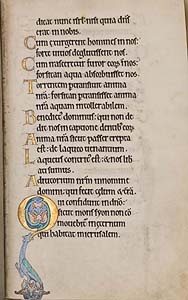 dicat nunc isrl: nisi quia dns
erat in nobis.
Cum exurgerent homines in nos:
forte uiuos deglutissent nos.
Cum irasceretur furor eoꝝ in nos:
forsitan aqua absorbuisset nos.
Torrentem pertransiuit anima
nr̄a: forsitan pertransisset anima
nr̄a aquam intollerabilem.
Benedict᷒ dominus: qui non de
dit nos in captione dentib; eoꝝ
Anima nr̄a sicut passer erepta
est: de laqueo uenantium.
Laqueus contritus est: & nos libe
rati sumus.
Adiutorium nr̄m in nomine
domini: qui fecit celum & terrā.
Qui confidunt in dn̄o:
sicut mons syon non co
mouebit᷑ in eternum
qui habitat in ierusalem.